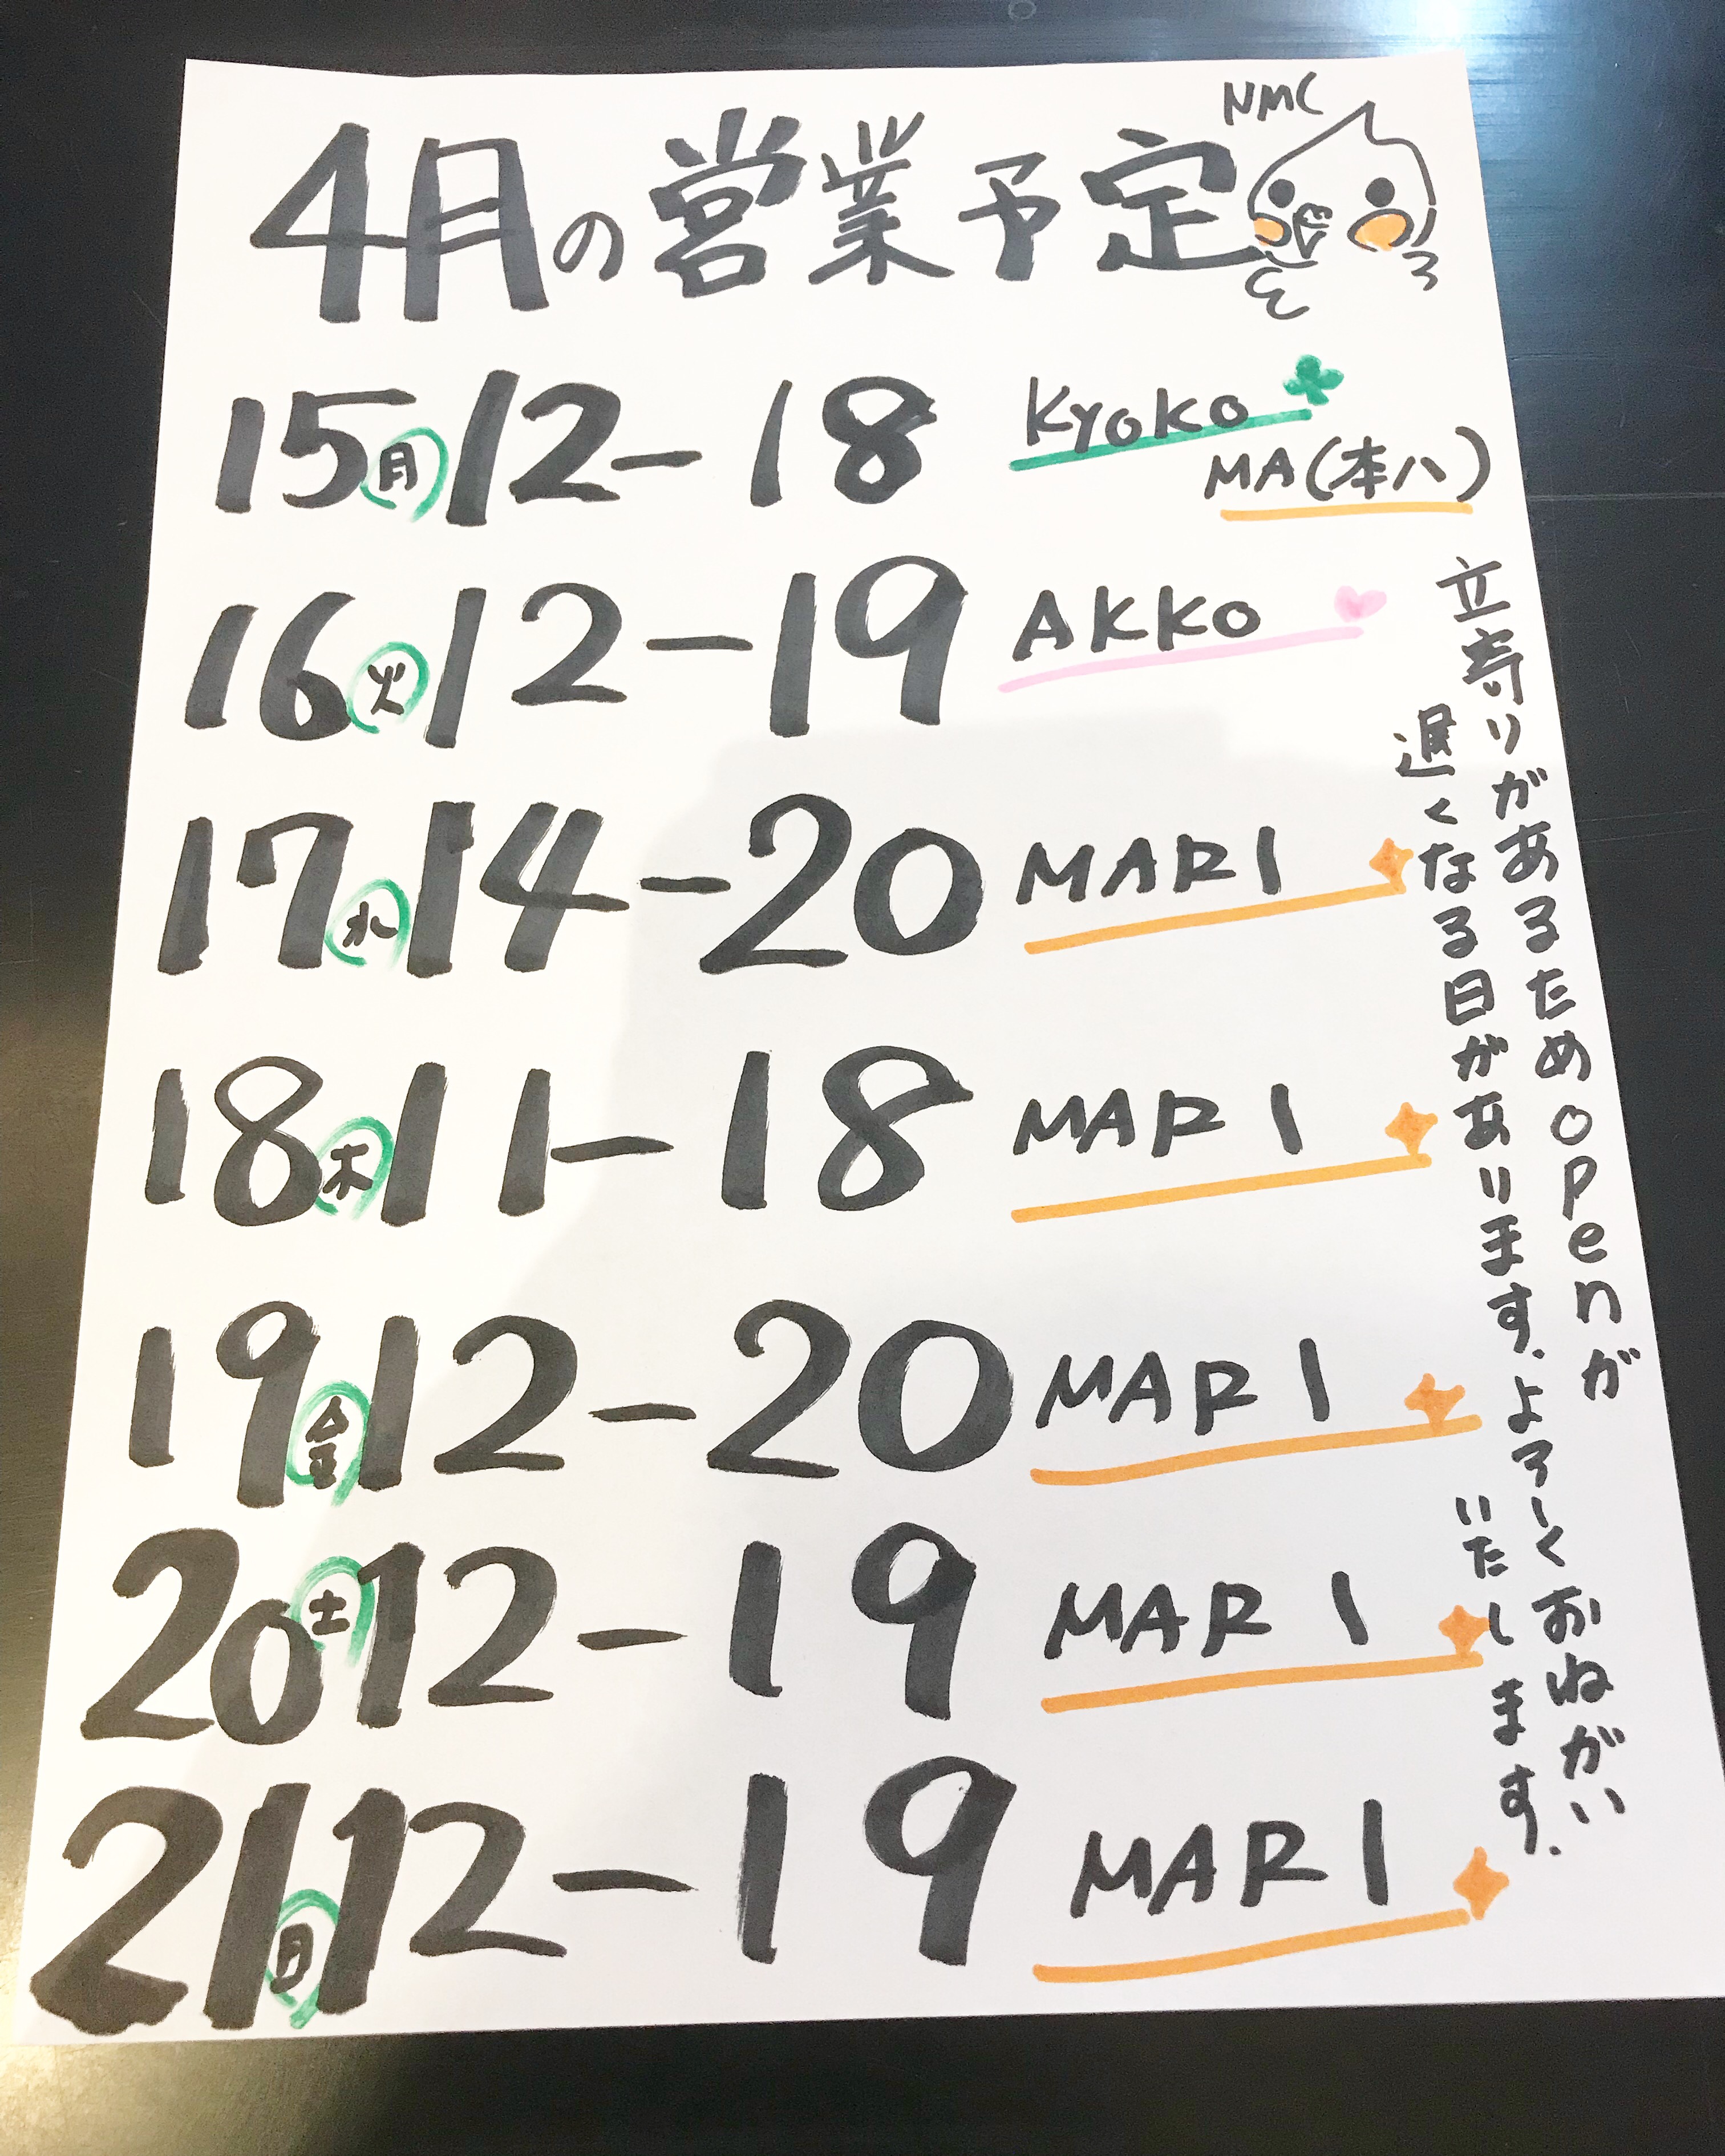 NMC
4月の営業予定
15(月)12-18 KYOKO
MA(本八)
16(火)12-19 AKKO
17(水)14-20 MARI
18(木)11-18 MARI
19(金)12-20 MARI
20(土)12-19 MARI
21(日)12-19 MARI
立寄りがあるためopenが
遅くなる日があります。よろしくおねがい
いたします。